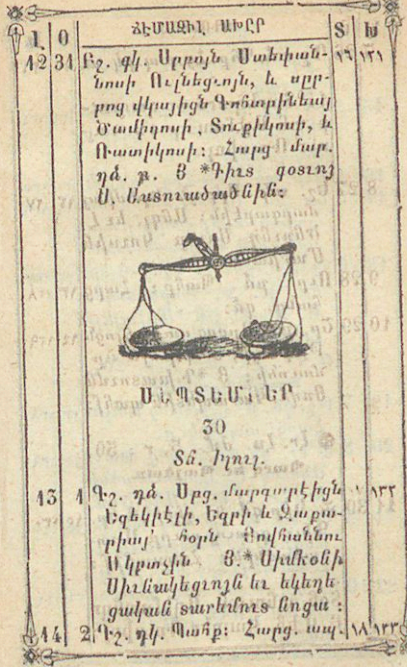 ՃԷՄԱԶԻԼ ԱԽԸՐ
Լ Օ Տ Խ
12 31 Բշ. գկ. Սրբոյն Ստեփան-
նոսի Ուլնեցւոյն, և սրբ-
րոց վկայիցն Գոհարինեայ
Ծամիդոսի, Տուքիկոսի, և
Ռատիկոսի: Հարց մար.
դձ. Յ *Գիւտ գօտւոյ
Ս. Աստուածածնին:
ՍԵՊՏԵՄԲԵՐ
30
Տճ. Իլուլ.
13 1 Գշ. դձ. Սրց. մարգարէիցն
Եզեկիէլի, Եզրի և Զաքա-
րիայ՝ հօրն Յովհաննու
Մկրտչին Յ.* Սիմէօնի
Սիւնակեցւոյն եւ եկեղե
ցական տարեմուտ նոցա :
14 2 Դշ. դկ. Պահք: Հարց. ապ. ՃԼԳ